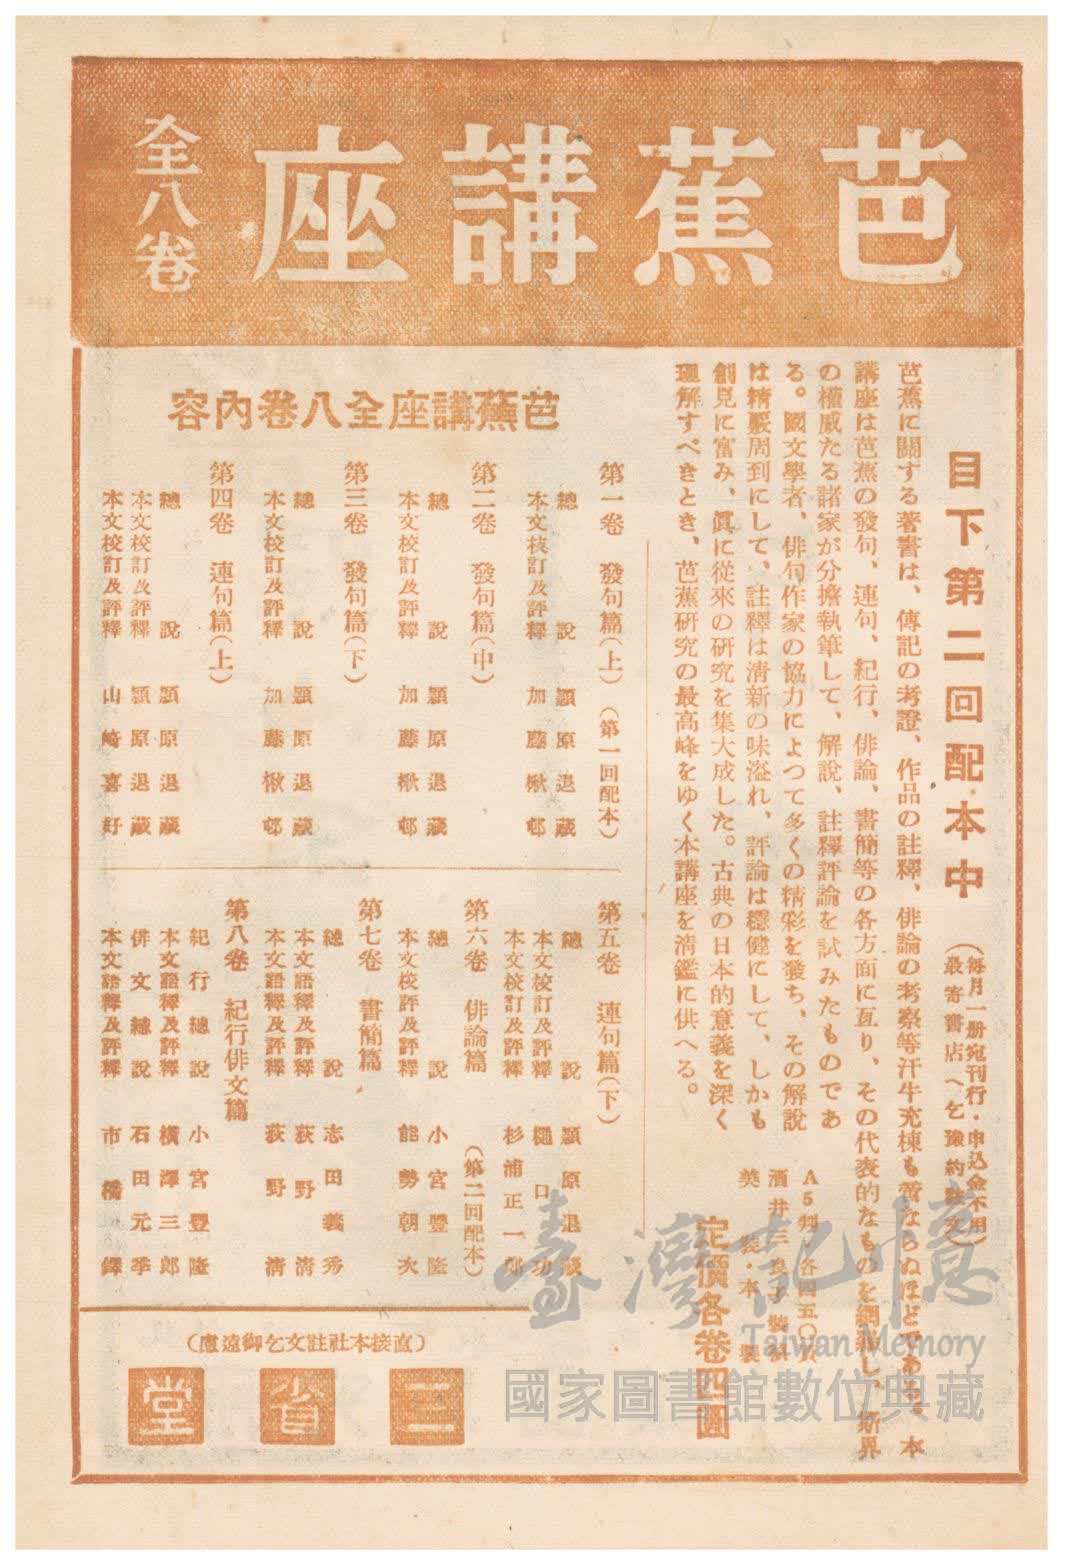 芭蕉講座
全八卷
目下第二回配本中
(每月一册宛刊行・申込金不用)
(最寄書店へ乞豫約註文)
芭蕉に關する著書は、傳記の考證、作品の註釋、俳論の考察等汗牛充棟も啻ならぬほどである。本
講座は芭蕉の發句、連句、紀行、俳論、書簡等の各方面に亙り、その代表的なものを網羅し、斯界
の權威たる諸家が分擔執筆して、解說、註釋評論を試みたものであ
る。國文學者、俳句作家の協力によつて多くの精彩を發ち、その解說
は精嚴周到にして、註釋は淸新の味溢れ、評論は穩健にして、しかも
創見に富み、眞に從來の研究を集大成した。古典の日本的意義を深く
理解すべきとき、芭蕉硏究の最高峰をゆく本講座を淸鑑に供へる。
A5判 各四五〇頁
酒井三良子裝
美裝・本
定價各卷四圓
芭蕉講座全八卷內容
第一卷 發句篇(上) (第一回配本)
總說 潁原退藏
本文校訂及評釋 加藤楸邨
第二卷 發句篇(中)
總說 潁原退藏
本文校訂及評釋 加藤楸邨
第三卷 發句篇(下)
總說 潁原退藏
本文校訂及評釋 加藤楸邨
第四卷 連句篇(上)
總說 潁原退藏
本文校訂及評釋 潁原退藏
本文校訂及評釋 山崎喜好
第五卷 連句篇(下)
總說 潁原退藏
本文校訂及評釋 樋口功
本文校訂及評釋 杉浦正一郎
第六卷 俳論篇 (第二回配本)
總說 小宮豐隆
本文校評及評釋 能勢朝次
第七卷 書簡篇
總說 志田義秀
本文語釋及評釋 荻野淸
本文語釋及評釋 荻野淸
第八卷 紀行俳文篇
紀行總說 小宮豐隆
本文語釋及評釋 橫澤三郎
俳文總說 石田元季
本文語釋及評釋 市橋鐸
(直接本社註文乞御遠慮)
三省堂
臺灣記憶
Taiwan Memory
國家圖書館數位典藏